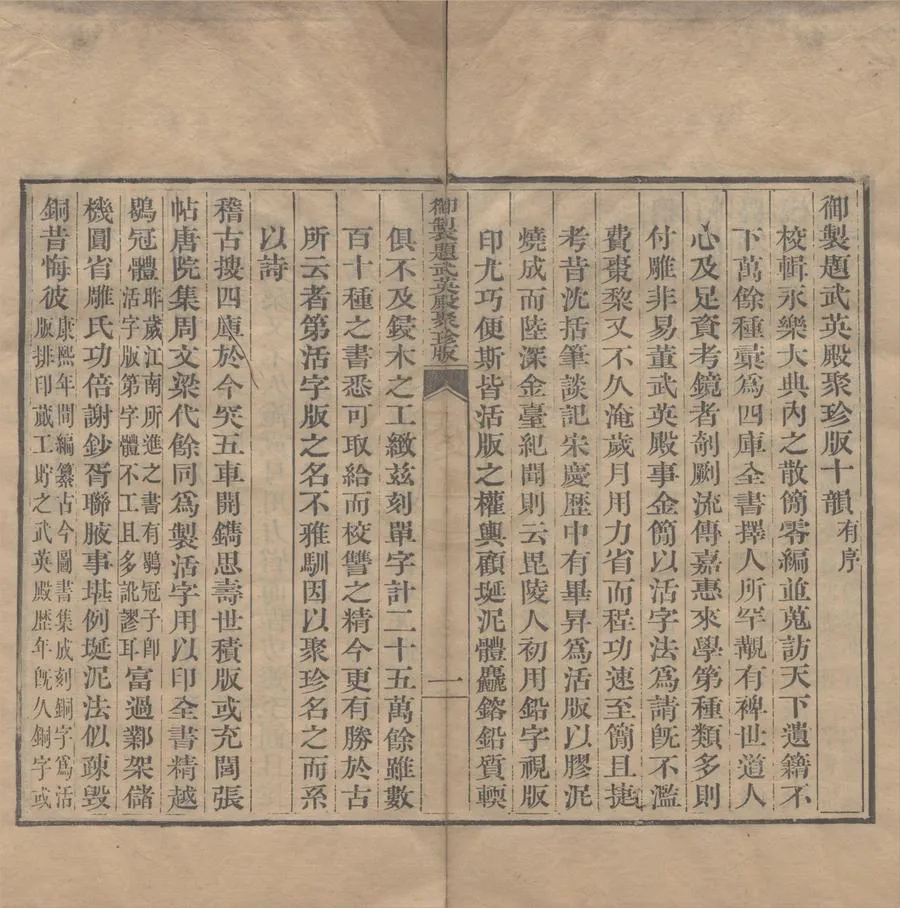 御製題武英殿聚珍版十韻有序
校輯永樂大典內之散簡零編並蒐訪天下遺籍不
下萬餘種彙為四庫全書擇人所罕覯有裨世道人
心及足資考鏡者剞劂流傳嘉惠來學第種類多則
付雕非易董武英殿事金簡以活字法為請旣不濫
費棗棃又不久淹歲月用力省而程功速至簡且捷
考昔沈括筆談記宋慶歷中有畢昇為活版以膠泥
燒成而陸深金臺紀聞則云毘陵人初用鉛字視版
印尤巧便斯皆活版之權輿顧埏泥體麤鎔鉛質輭
御製題武英殿聚珍版
一
俱不及鋟木之工緻茲刻單字計二十五萬餘雖數
百十種之書悉可取給而校讐之精今更有勝於古
所云者第活字版之名不雅馴因以聚珍名之而系
以詩
稽古搜四庫於今突五車開鐫思壽世積版或充閭張
帖唐院集周文梁代餘同為製活字用以印全書精越
鶡冠體昨歲江南所進之書有鶡冠子卽活字版第字體不工且多訛謬耳富過鄴架儲
機圓省雕氏功倍謝鈔胥聯腋事堪例埏泥法似疎毀
銅昔悔彼康熙年間編纂古今圖書集成刻銅字為活版排印蕆工貯之武英殿歷年旣久銅字或